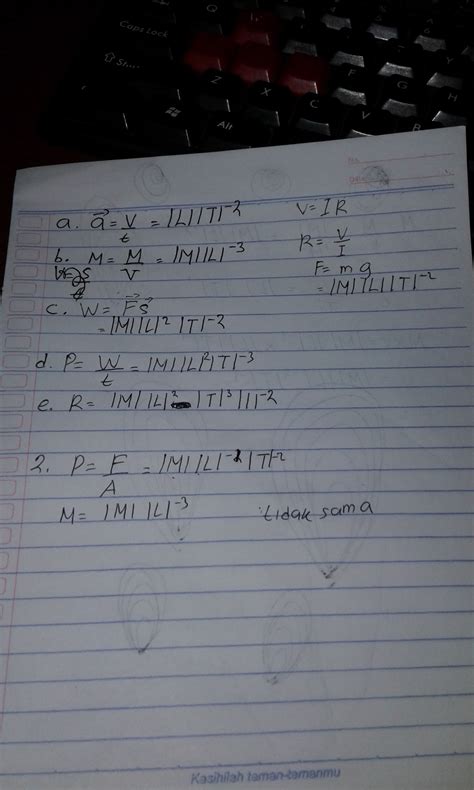 Caps Lock
Sh...
Z
X
C
V
B
F
G
H
Alt
No.
Date
a. a⃗ = V/t = |L||T|⁻² V = I R
b. M = M/V = |M||L|⁻³ R = V/I
F = m a
= |M||L||T|⁻²
c. W = F⃗s⃗
= |M||L|² |T|⁻²
d. P = W/t = |M||L|²|T|⁻³
e. R = |M||L|² |T|³|I|⁻²
2. P = F/A = |M||L|⁻¹|T|⁻²
M = |M||L|⁻³ tidak sama
Kasihilah taman-tamanmu